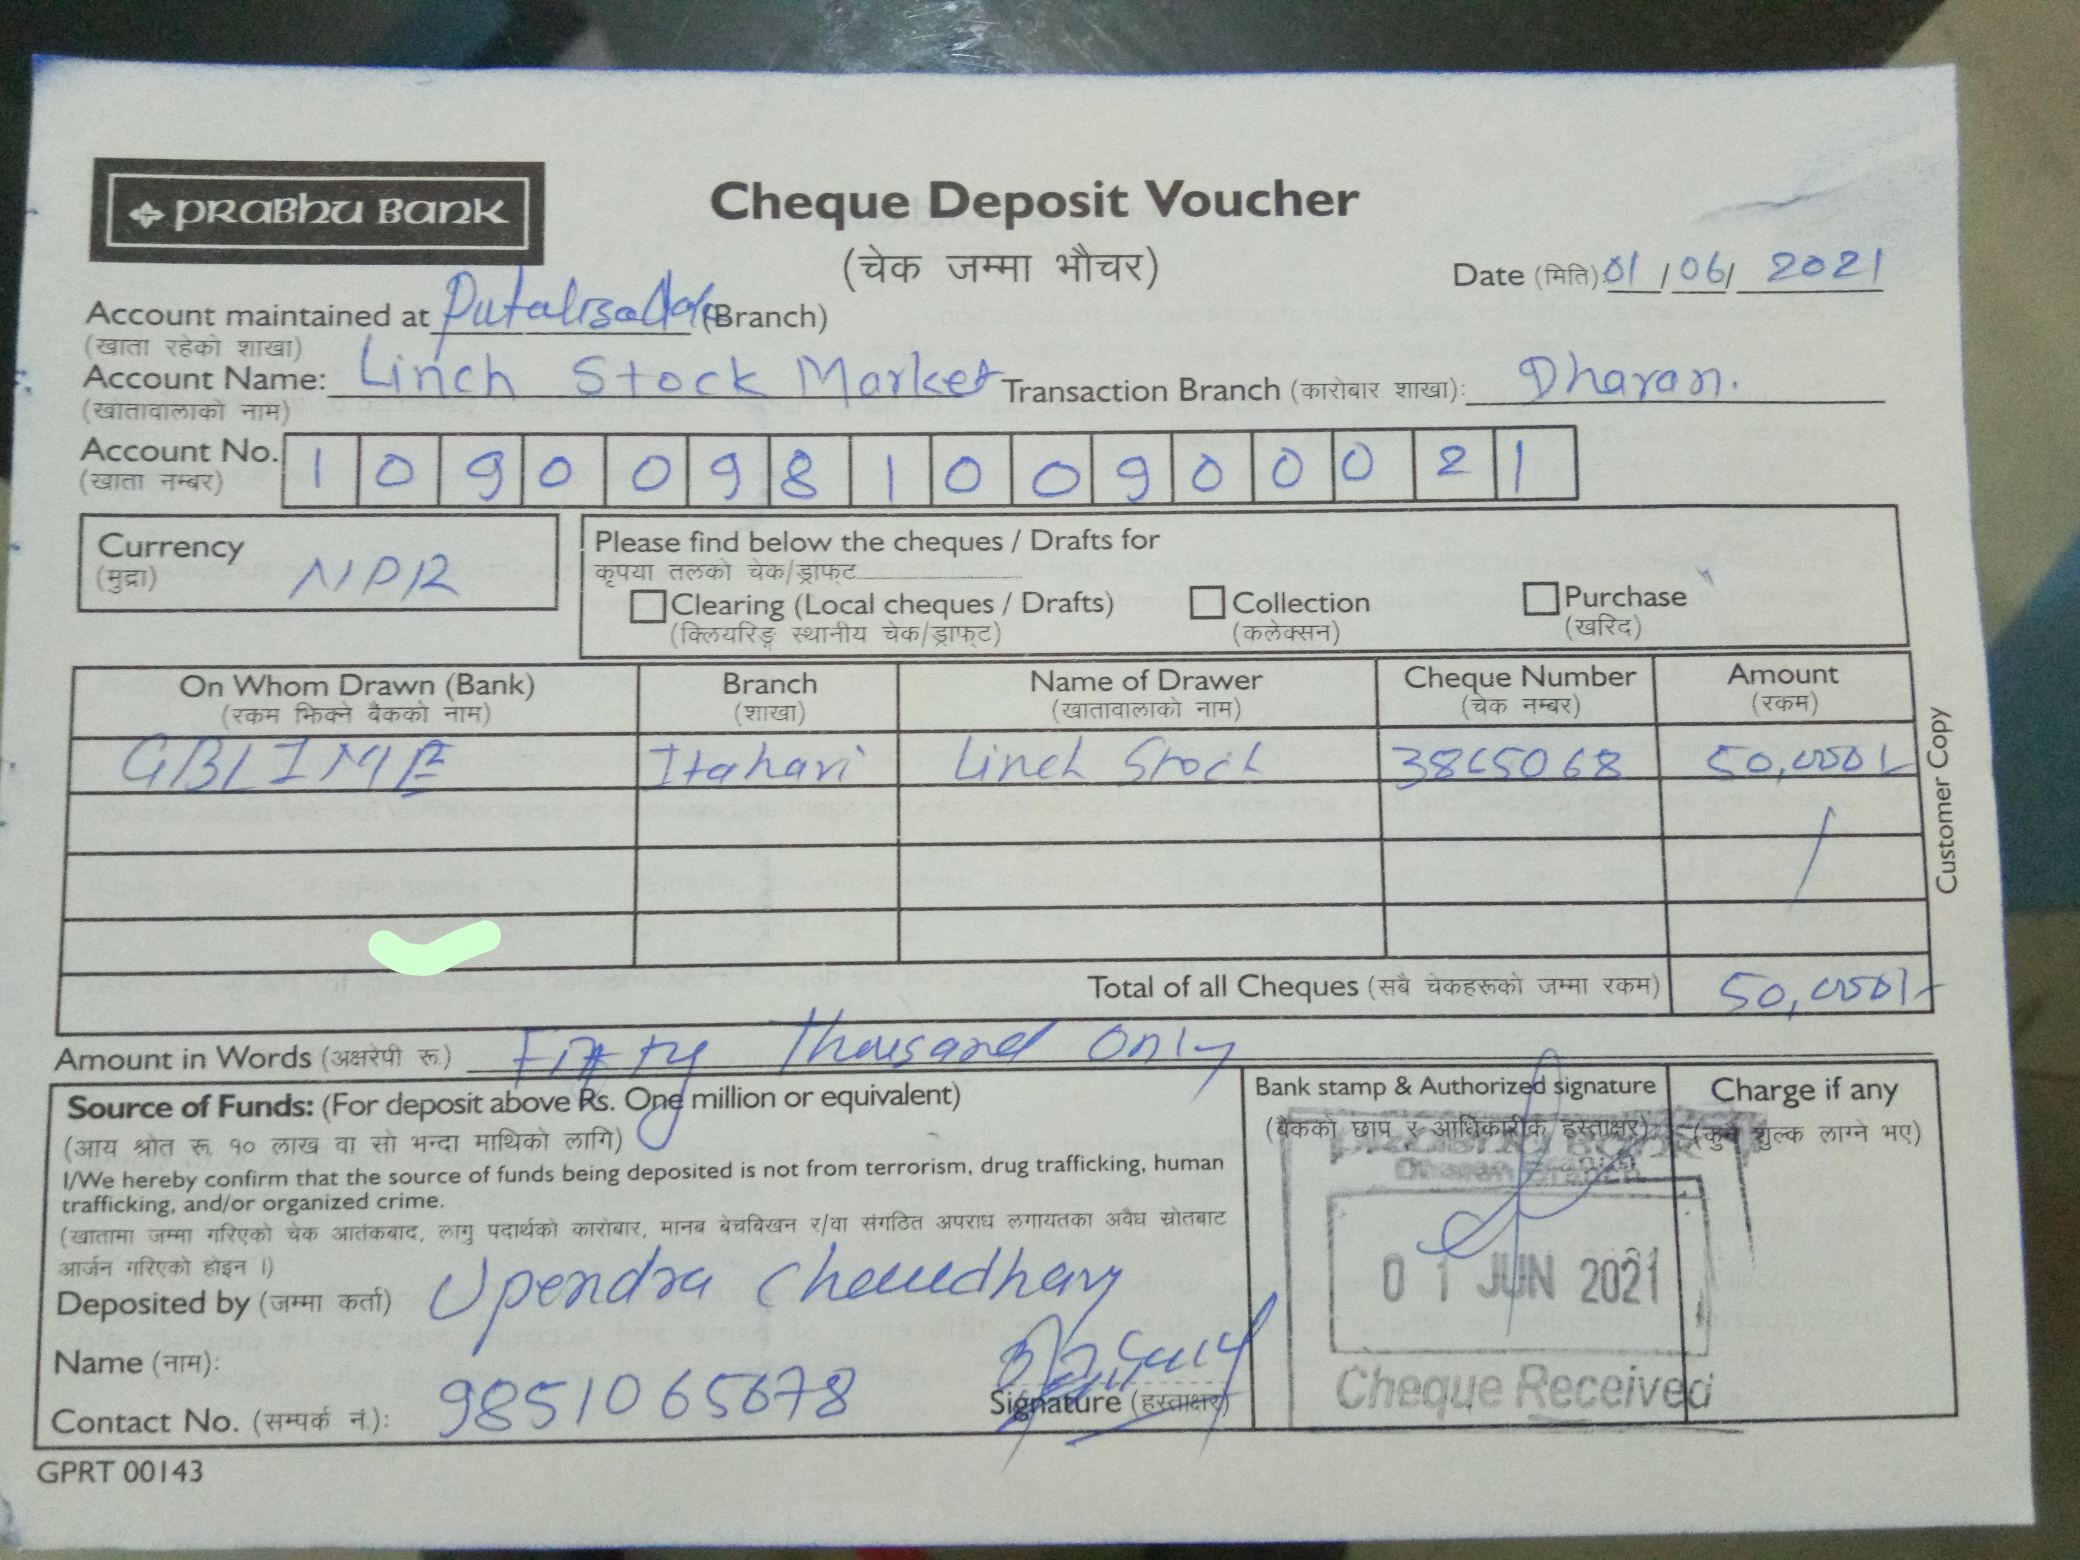 PRABHU BANK
Cheque Deposit Voucher
(चेक जम्मा भौचर)
Date (मिति): 01/06/2021
Account maintained at Putalisadak (Branch)
(खाता रहेको शाखा)
Account Name: Linch Stock Market Transaction Branch (कारोबार शाखा): Dharan.
(खातावालाको नाम)
Account No. 1 0 9 0 0 9 8 1 0 0 9 0 0 0 2 1
(खाता नम्बर)
Currency NPR
(मुद्रा)
Please find below the cheques / Drafts for
कृपया तलको चेक/ड्राफ्ट
Clearing (Local cheques / Drafts) Collection Purchase
(क्लियरिङ्ग स्थानीय चेक/ड्राफ्ट) (कलेक्सन) (खरिद)
On Whom Drawn (Bank) Branch Name of Drawer Cheque Number Amount
(रकम झिक्ने बैकको नाम) (शाखा) (खातावालाको नाम) (चेक नम्बर) (रकम)
GBLIME Itahari Linch Stock 3865068 50,000/-
Total of all Cheques (सबै चेकहरूको जम्मा रकम) 50,000/-
Amount in Words (अक्षरेपी रू.) Fifty thousand only
Source of Funds: (For deposit above Rs. One million or equivalent)
(आय श्रोत रू. १० लाख वा सो भन्दा माथिको लागि)
I/We hereby confirm that the source of funds being deposited is not from terrorism, drug trafficking, human
trafficking, and/or organized crime.
(खातामा जम्मा गरिएको चेक आतंकबाद, लागु पदार्थको कारोबार, मानब बेचबिखन र/वा संगठित अपराध लगायतका अवैध स्रोतबाट
आर्जन गरिएको होइन ।)
Deposited by (जम्मा कर्ता) Upendra Choudhary
Name (नाम):
Contact No. (सम्पर्क नं.): 9851065678
Signature (हस्ताक्षर)
Bank stamp & Authorized signature
(बैकको छाप र आधिकारीक हस्ताक्षर)
Dharan Branch
01 JUN 2021
Cheque Received
Charge if any
(कुनै शुल्क लाग्ने भए)
Customer Copy
GPRT 00143